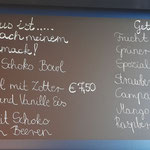 us ist.....
nach meinem
mack!
Schoko Bowl
l mit Zotter €7,50
und Vanille Eis
it Schoko
n Beeren
Get
Frucht
Grüner
Spezial
Straude
Camp
Mango
Raspber